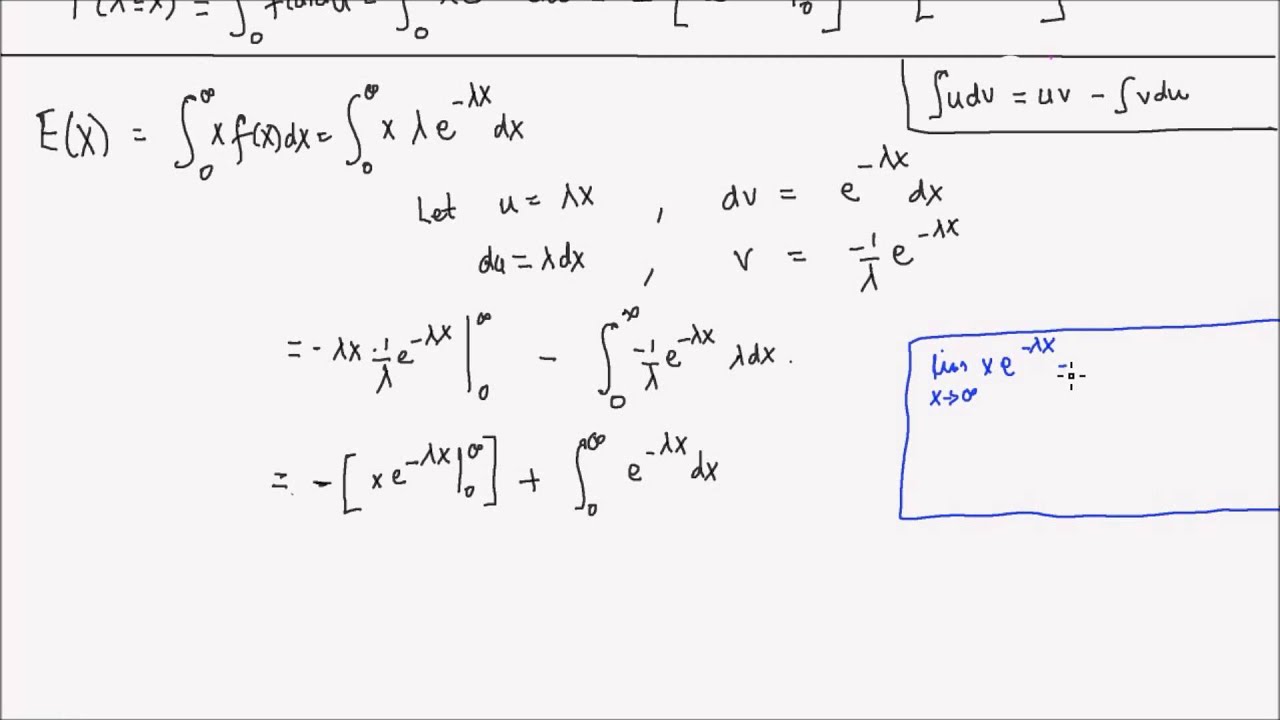 ∫udv = uv - ∫vdu
E(X) = ∫₀^∞ x f(x)dx = ∫₀^∞ x λ e^{-λx} dx
Let u = λx , dv = e^{-λx} dx
du = λdx , v = -1/λ e^{-λx}
= - λx · 1/λ e^{-λx} |₀^∞ - ∫₀^∞ -1/λ e^{-λx} λdx .
= - [ x e^{-λx} |₀^∞ ] + ∫₀^∞ e^{-λx} dx
lim x e^{-λx} =
x→∞